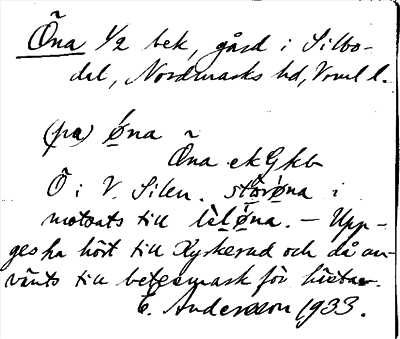 Õna 1/2 bek, gård i Silbo-
dal, Nordmarks hd, Vrml l.
(pa) ǿna ~
Õna ekGkb
Ö i V. Silen. störøna i
motsats till lèløna. – Upp-
ges ha hört till Kyrkerud och då an-
vänts till betesmark för hästar.
E. Andersson 1933.